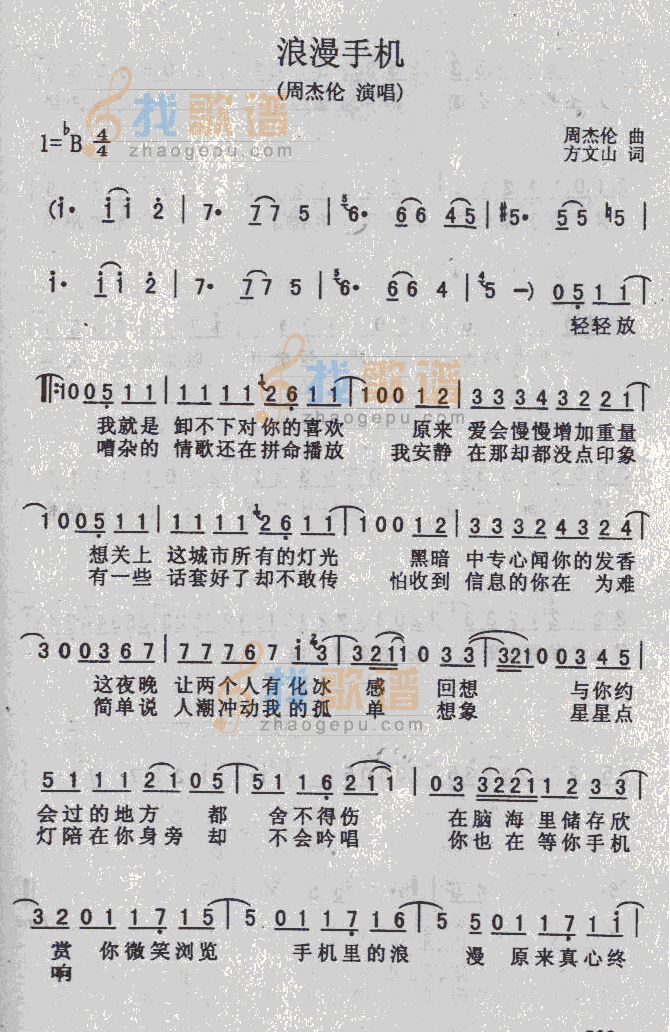 浪漫手机
(周杰伦 演唱)
找歌谱
zhaogepu.com
1=♭B 4/4
周杰伦 曲
方文山 词
(i· i i 2 | 7· 7 7 5 | 6· 6 6 4 5 | #5· 5 5 ♮5 |
i· i i 2 | 7· 7 7 5 | 6· 6 6 4 | 5 —) 0 5 1 1 |
轻轻放
找歌谱
zhaogepu.com
‖: 1 0 0 5 1 1 | 1 1 1 1 2 6 1 1 | 1 0 0 1 2 | 3 3 3 4 3 2 2 1 |
我就是 卸不下对你的喜欢 原来 爱会慢慢增加重量
嘈杂的 情歌还在拼命播放 我安静 在那却都没点印象
1 0 0 5 1 1 | 1 1 1 1 2 6 1 1 | 1 0 0 1 2 | 3 3 3 2 4 3 2 4 |
想关上 这城市所有的灯光 黑暗 中专心闻你的发香
有一些 话套好了却不敢传 怕收到 信息的你在 为难
3 0 0 3 6 7 | 7 7 7 6 7 i 3 | 3 2 1 1 0 3 3 | 3 2 1 0 0 3 4 5 |
找歌谱
zhaogepu.com
这夜晚 让两个人有化冰 感 回想 与你约
简单说 人潮冲动我的孤 单 想象 星星点
5 1 1 1 2 1 0 5 | 5 1 1 6 2 1 1 | 0 3 3 2 2 1 1 2 3 3 |
会过的地方 都 舍不得伤 在脑 海 里储存欣
灯陪在你身旁 却 不会吟唱 你也 在 等你手机
3 2 0 1 1 7 1 5 | 5 0 1 1 7 1 6 | 5 5 0 1 1 7 1 i |
赏 你微笑浏览 手机里的浪 漫 原来真心终
响